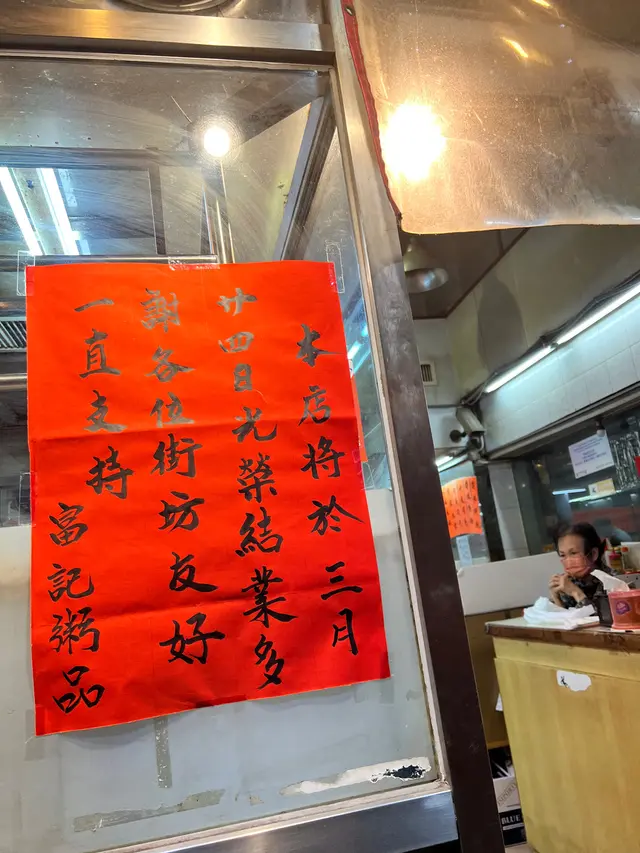 本店將於三月
廿四日光榮結業多
謝各位街坊友好
一直支持
富記粥品
BLUE